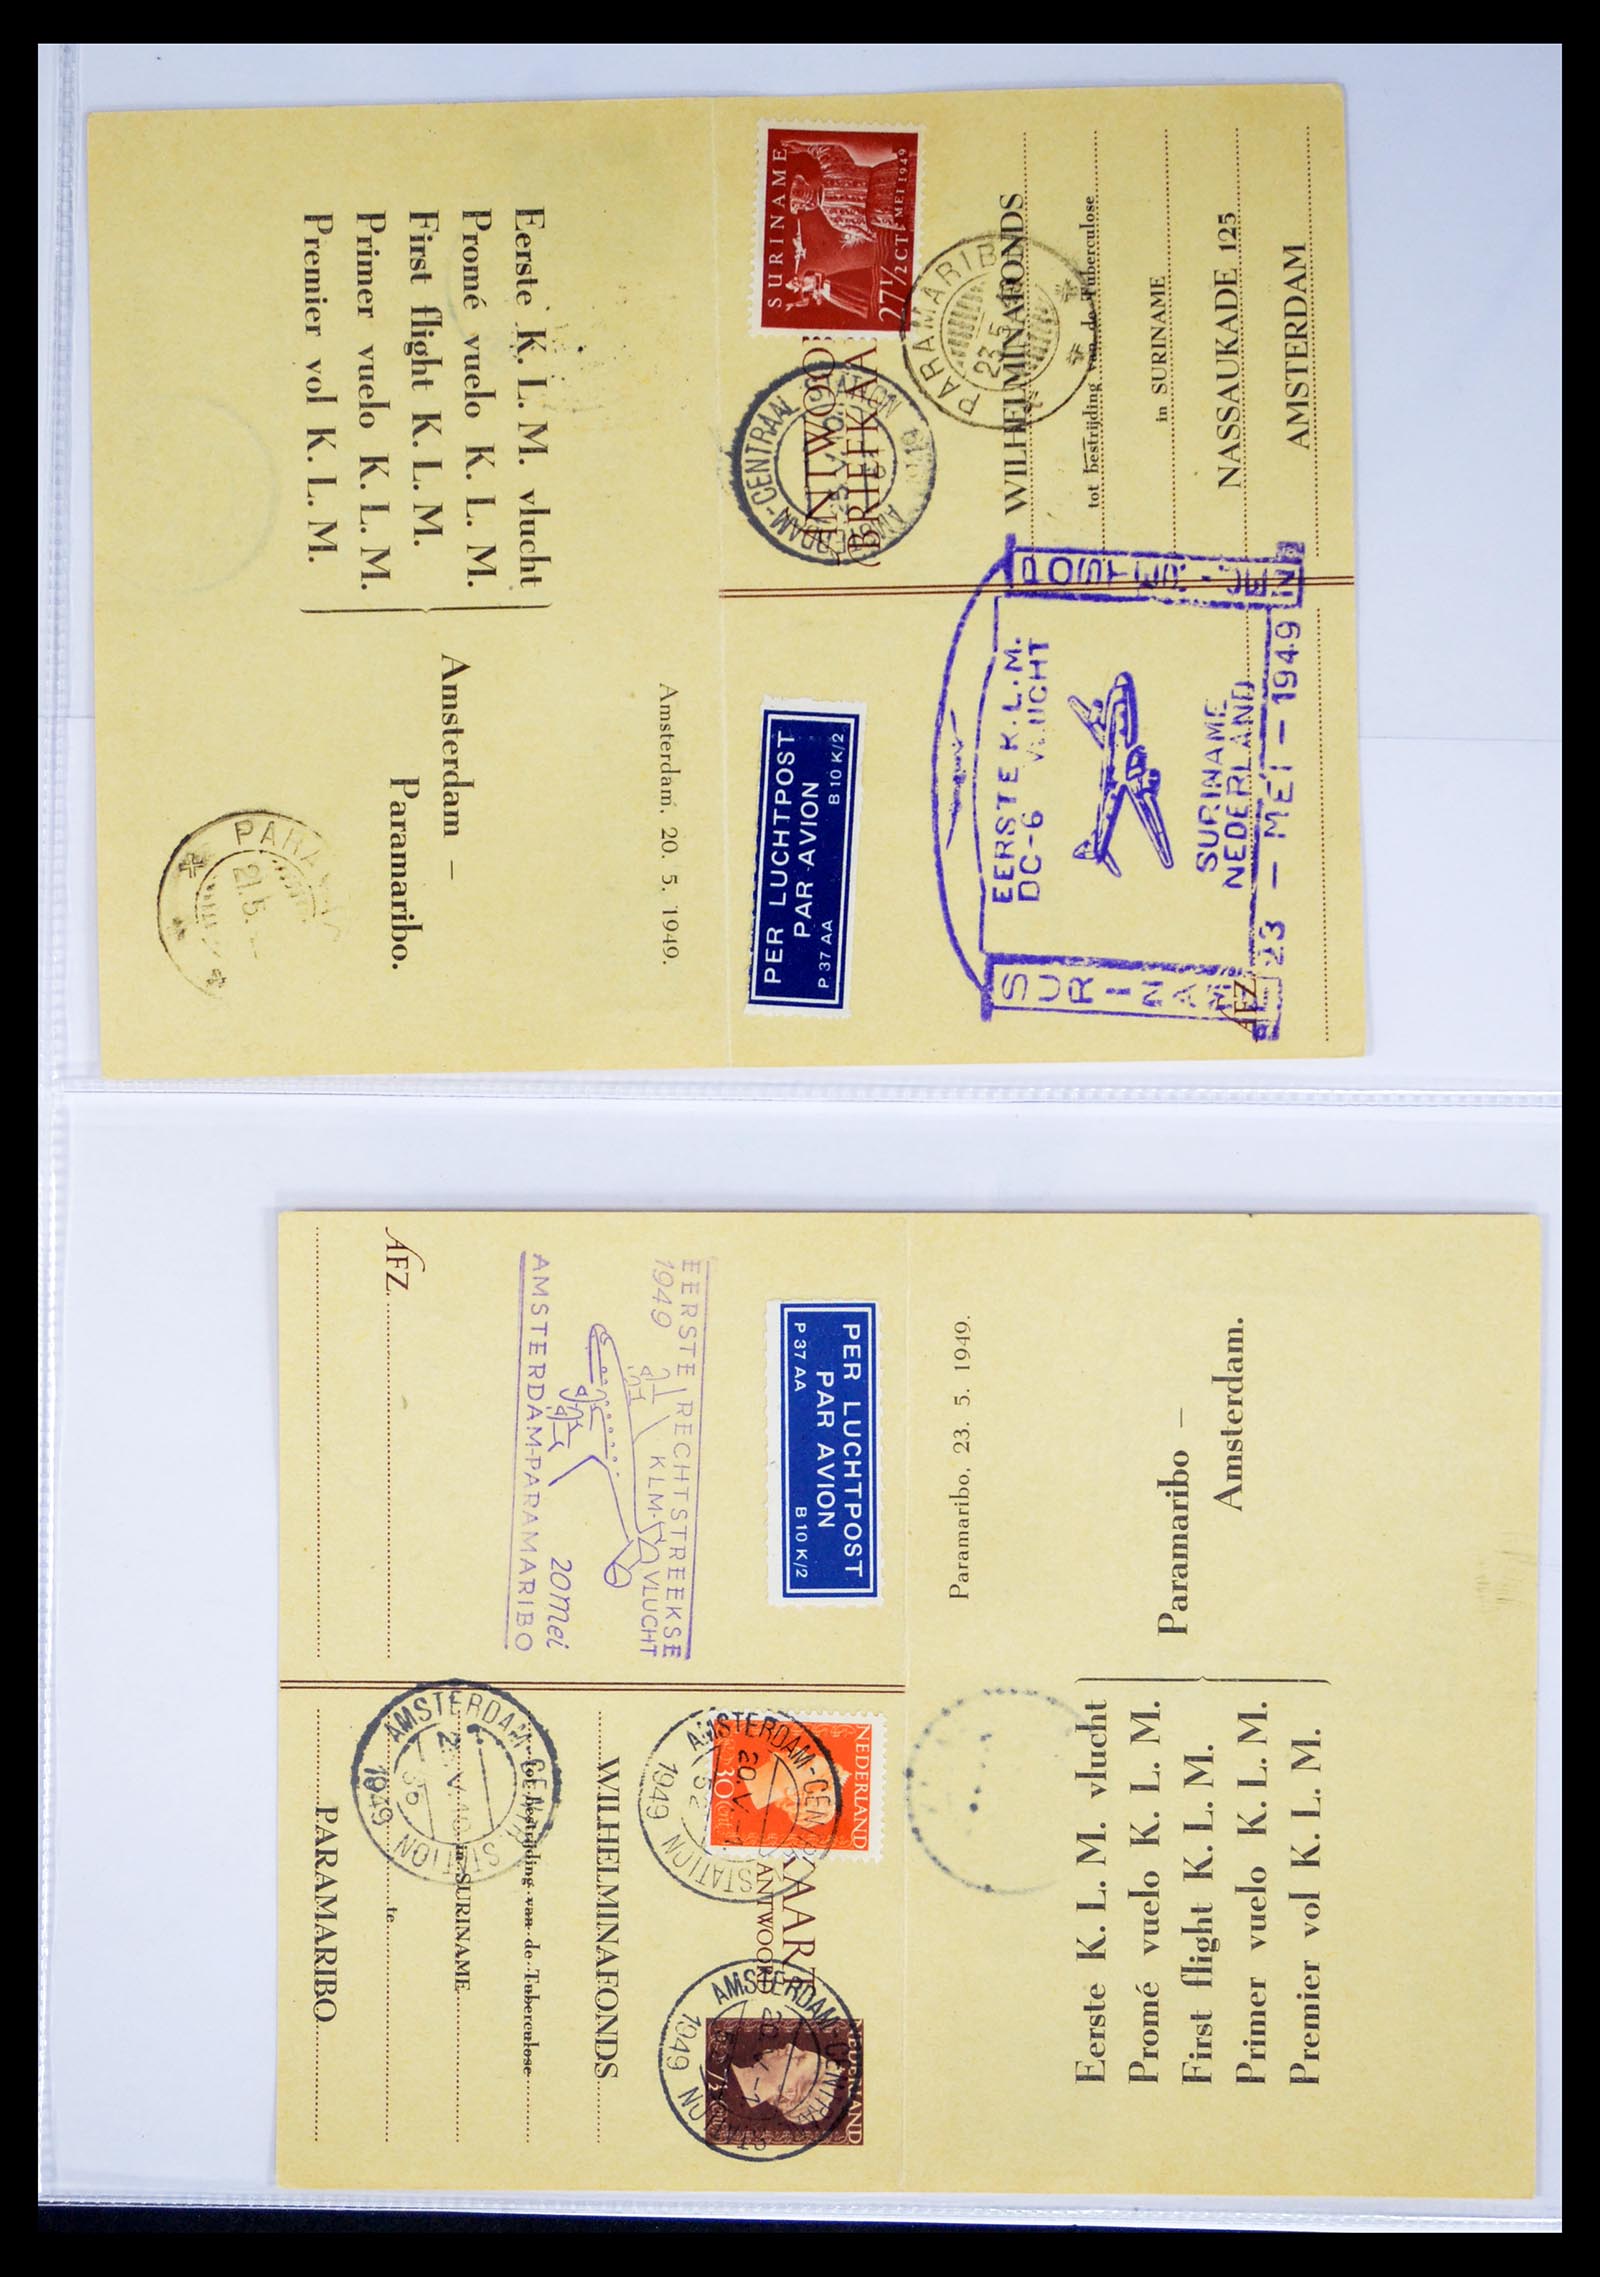 Eerste K. L. M. vlucht
Promé vuelo K. L. M.
First flight K. L. M.
Primer vuelo K. L. M.
Premier vol K. L. M.
Amsterdam –
Paramaribo.
21.5.
Amsterdam, 20. 5. 1949.
SURINAME
27½ CT
MEI 1949
PARAMARIBO
23.5
AMSTERDAM-CENTRAAL STATION
WILHELMINAFONDS
tot bestrijding van de Tuberculose
in SURINAME
NASSAUKADE 125
AMSTERDAM
PER LUCHTPOST
PAR AVION
P 37 AA
B 10 K/2
EERSTE K.L.M.
DC-6 VLUCHT
SURINAME
NEDERLAND
23 – MEI – 1949
SURINAME
AFZ.
AFZ.
EERSTE RECHTSTREEKSE
1949 KLM-VLUCHT
20 mei
AMSTERDAM-PARAMARIBO
PER LUCHTPOST
PAR AVION
P 37 AA
B 10 K/2
NEDERLAND
30 cent
AMSTERDAM-CENTRAAL STATION
20.V
1949
KAART
ANTWOORD
NEDERLAND
7½ cent
AMSTERDAM-CENTRAAL STATION
1949
AMSTERDAM-CENTRAAL STATION
1949
WILHELMINAFONDS
tot bestrijding van de Tuberculose
in SURINAME
te
PARAMARIBO
Paramaribo, 23. 5. 1949.
Eerste K. L. M. vlucht
Promé vuelo K. L. M.
First flight K. L. M.
Primer vuelo K. L. M.
Premier vol K. L. M.
Paramaribo –
Amsterdam.